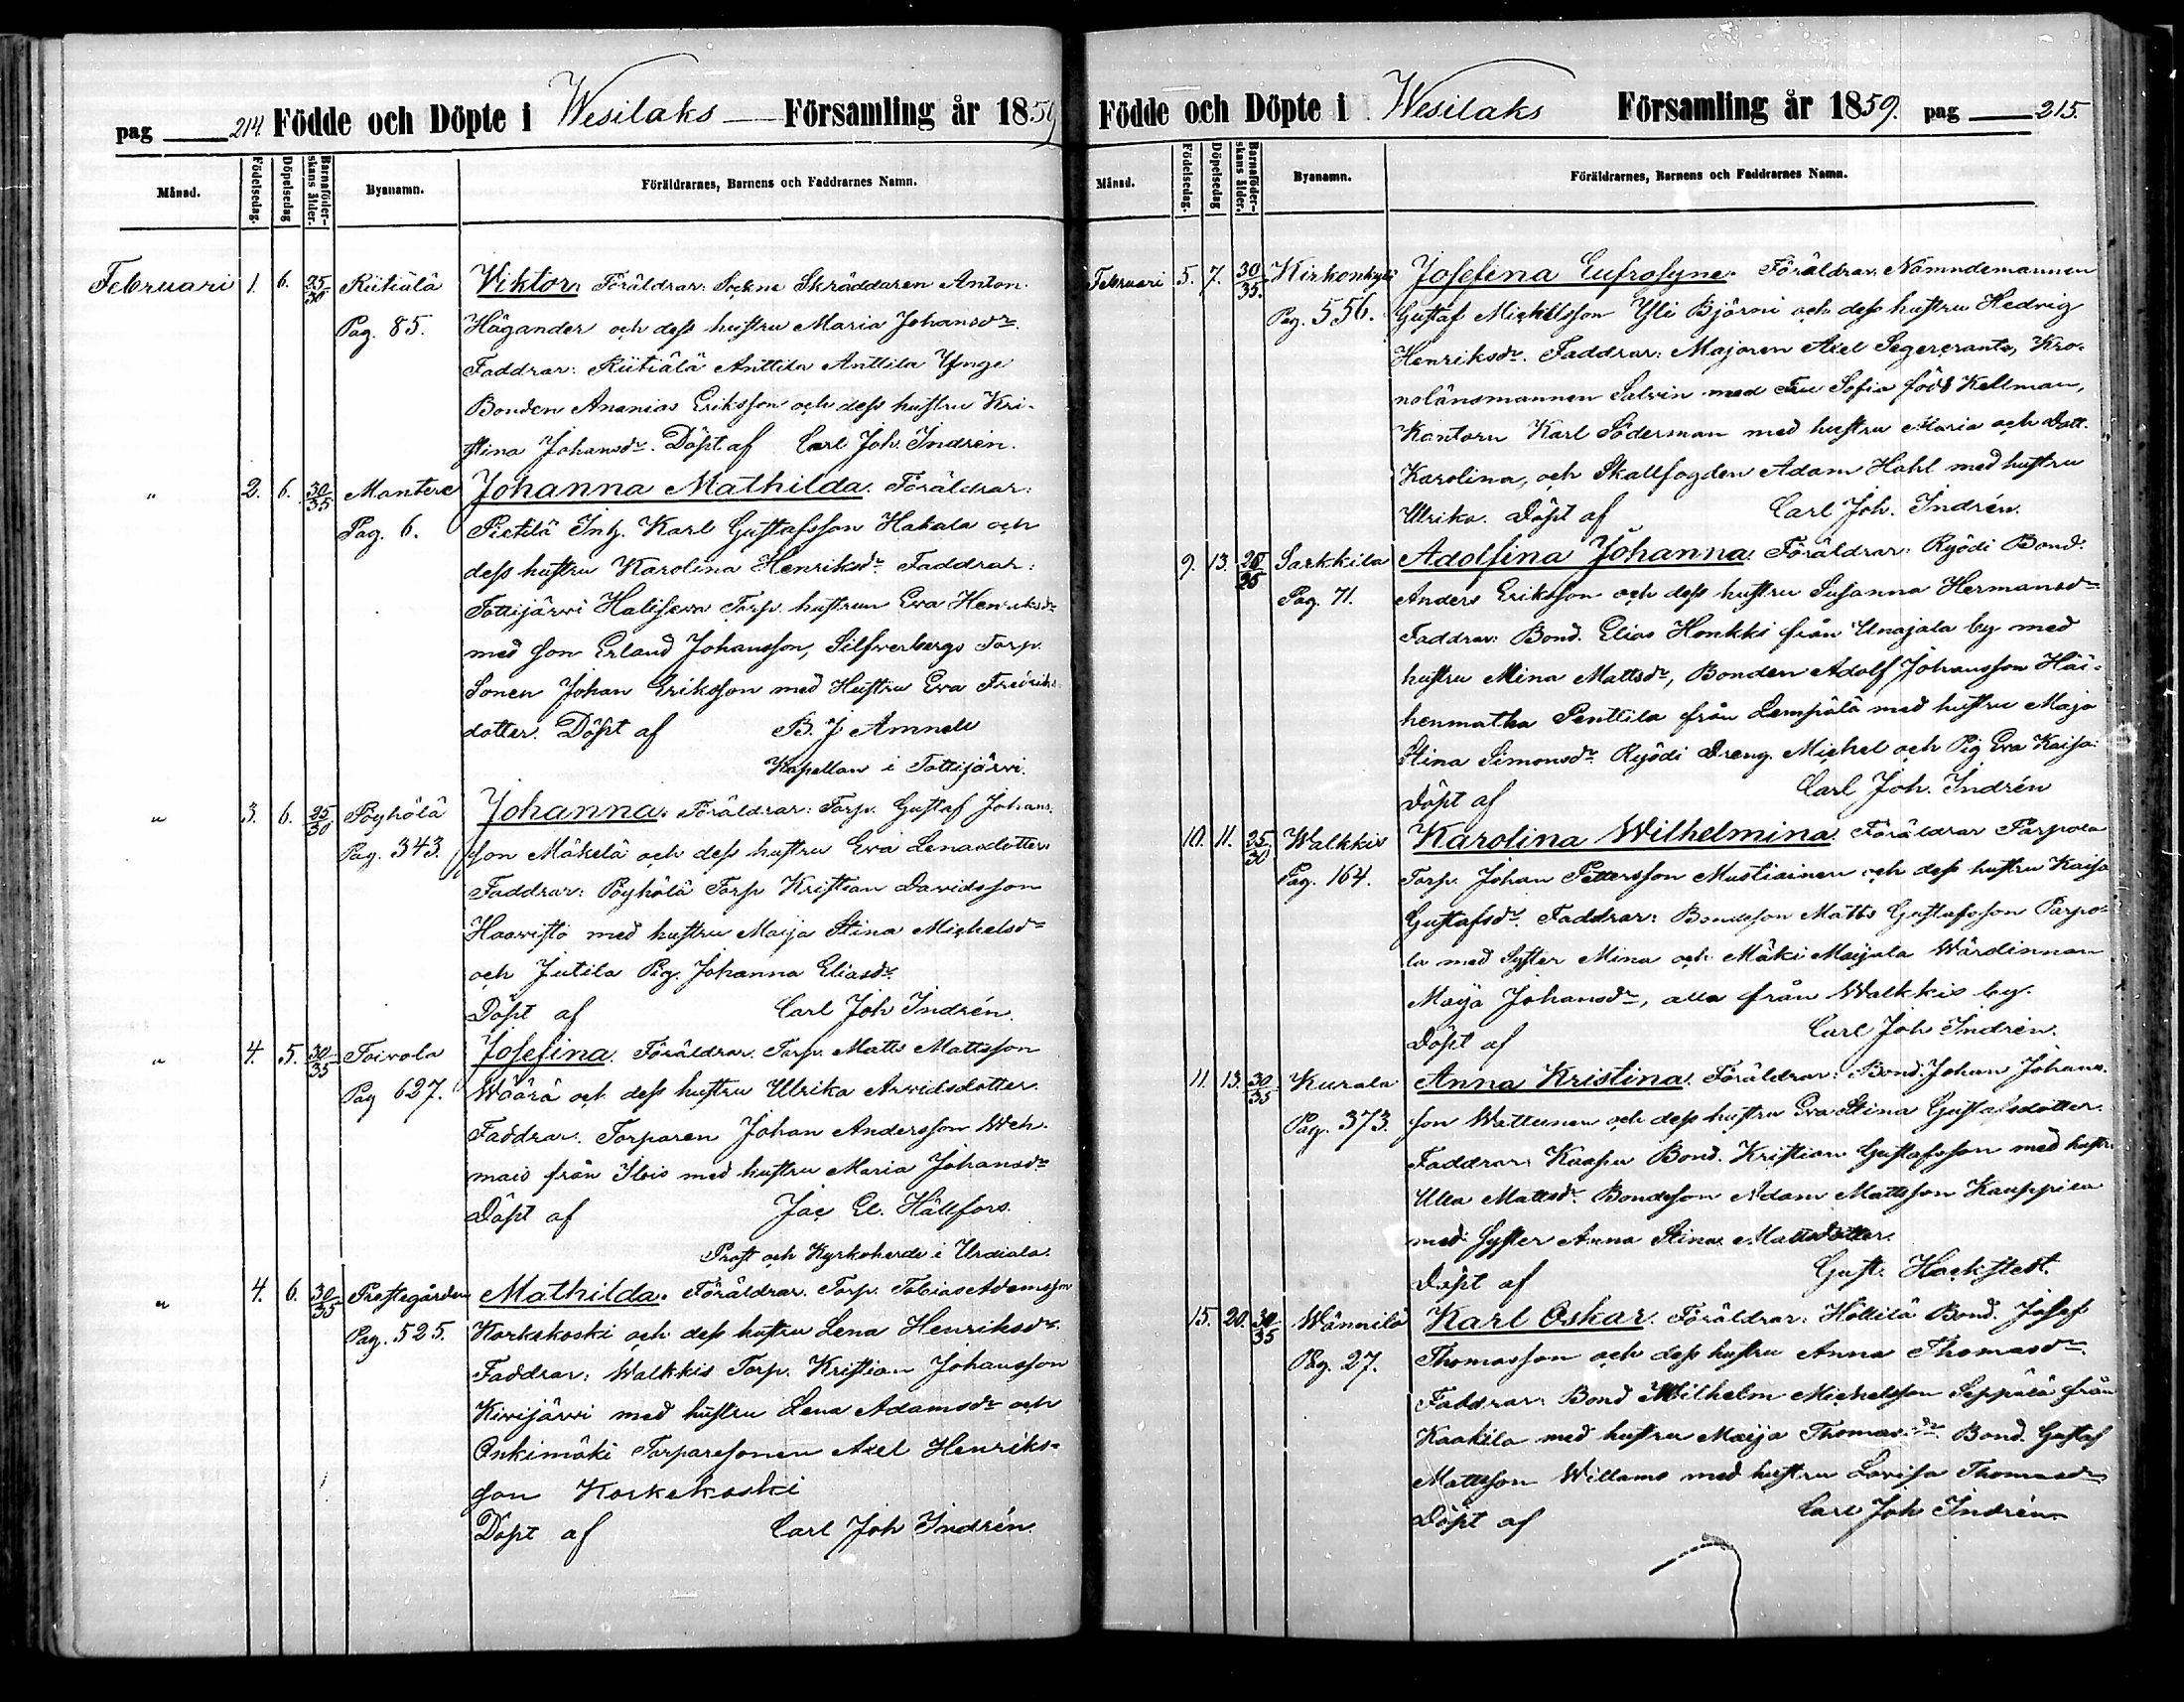 pag 214. Födde och Döpte i Wesilaks Församling år 1859
Månad. Födelsedag. Döpelsedag Barnaföderskans ålder. Byanamn. Föräldrarnes, Barnens och Faddrarnes Namn.
Februari 1. 6. 25/30 Riitiälä Viktor. Föräldrar: Sockne Skräddaren Anton
Pag. 85. Hägander och dess hustru Maria Johansdr.
Faddrar: Riitiälä Anttila Anttila Ynge
Bonden Ananias Eriksson och dess hustru Kri-
stina Johansdr. Döpt af Carl Joh. Indrén.
" 2. 6. 30/35 Mantere Johanna Mathilda. Föräldrar:
Pag. 6. Pietilä Inh. Karl Gustafsson Hakala och
dess hustru Karolina Henriksdr. Faddrar:
Tottijärvi Torp. hustrun Eva Henriksdr
med son Erland Johansson, Silfverbergs Torp.
Sonen Johan Eriksson med Hustru Eva Fredriks
dotter. Döpt af B. J. Amnell
Kapellan i Tottijärvi.
" 3. 6. 25/30 Pöyhölä Johanna. Föräldrar: Torp. Gustaf Johans
Pag. 343. son Mäkelä och dess hustru Eva Lenasdotter
Faddrar: Pöyhölä Torp Kristian Davidsson
Haavisto med hustru Maija Stina Michelsdr
och Jutila Pig. Johanna Eliasdr.
Döpt af Carl Joh Indrén.
" 4. 5. 30/35 Toivola Josefina. Föräldrar. Torp. Matts Mattsson
Pag 627. Wäärä och dess hustru Ulrika Arvidsdotter.
Faddrar. Torparen Johan Andersson Weh-
mais från med hustru Maria Johansdr
Döpt af Jac El. Hällfors.
Prost och Kyrkoherde i Urdiala.
" 4. 6. 30/35 Prestegården Mathilda. Föräldrar. Torp. Tobias Adamsson
Pag. 525. Korkekoski och dess hustru Lena Henriksdr.
Faddrar: Walkkis Torp. Kristian Johansson
Kivijärvi med hustru Lena Adamsdr och
Onkimäki Torparesonen Axel Henriks-
son Korkekoski
Döpt af Carl Joh Indrén.
Födde och Döpte i Wesilaks Församling år 1859. pag 215.
Månad. Födelsedag. Döpelsedag Barnaföderskans ålder. Byanamn. Föräldrarnes, Barnens och Faddrarnes Namn.
Februari 5. 7. 30/35. Kirkonkylä Josefina Eufrosyne. Föräldrar. Nämndemannen
Pag. 556. Gustaf Michelsson Yli Björni och dess hustru Hedvig
Henriksdr. Faddrar: Majoren Axel Segercrantz, Kro-
nolänsmannen Salvin med Fru Sofia född Kellman,
Kantorn Karl Söderman med hustru Maria och dott.
Karolina, och Skallfogden Adam Hahl med hustru
Ulrika. Döpt af Carl Joh. Indrén.
9. 13. 20/25 Sarkkila Adolfina Johanna. Föräldrar: Ryödi Bond.
Pag. 71. Anders Eriksson och dess hustru Susanna Hermansdr
Faddrar: Bond. Elias Honkki från Unajala by med
hustru Mina Mattsdr, Bonden Adolf Johansson Häi-
henmatka Penttilä från Lempälä med hustru Maja
Stina Simonsdr Ryödi Dreng. Michel och Pig Eva Kaisa.
Döpt af Carl Joh. Indrén
10. 11. 25/30 Walkkis Karolina Wilhelmina. Föräldrar Parpola
Pag. 164. Torp. Johan Pettersson Mustiainen och dess hustru Kaisa
Gustafsdr. Faddrar: Bondeson Matts Gustafsson Parpo-
la med Syster Mina och Mäki Maijala Wärdinnan
Maja Johansdr, alla från Walkkis by.
Döpt af Carl Joh Indrén.
11. 13. 30/35 Kurala Anna Kristina. Föräldrar: Bond Johan Johans-
Pag. 373. son Wattunen och dess hustru Eva Stina Gustafsdotter.
Faddrar: Bond. Kristian Gustafsson med hustru
Ulla Mattsdr. Bondeson Adam Mattsson Kauppila
med Syster Anna Stina Mattsdotter.
Döpt af Gust. Hackstedt.
15. 20. 30/35 Wännilä Karl Oskar. Föräldrar: Höllilä Bond. Josef
Pag. 27. Thomasson och dess hustru Anna Thomasdr
Faddrar: Bond Wilhelm Michelsson Seppälä från
Kaakila med hustru Maija Thomasdr Bond. Gustaf
Mattsson Willamo med hustru Lovisa Thomasdr
Döpt af Carl Joh Indrén